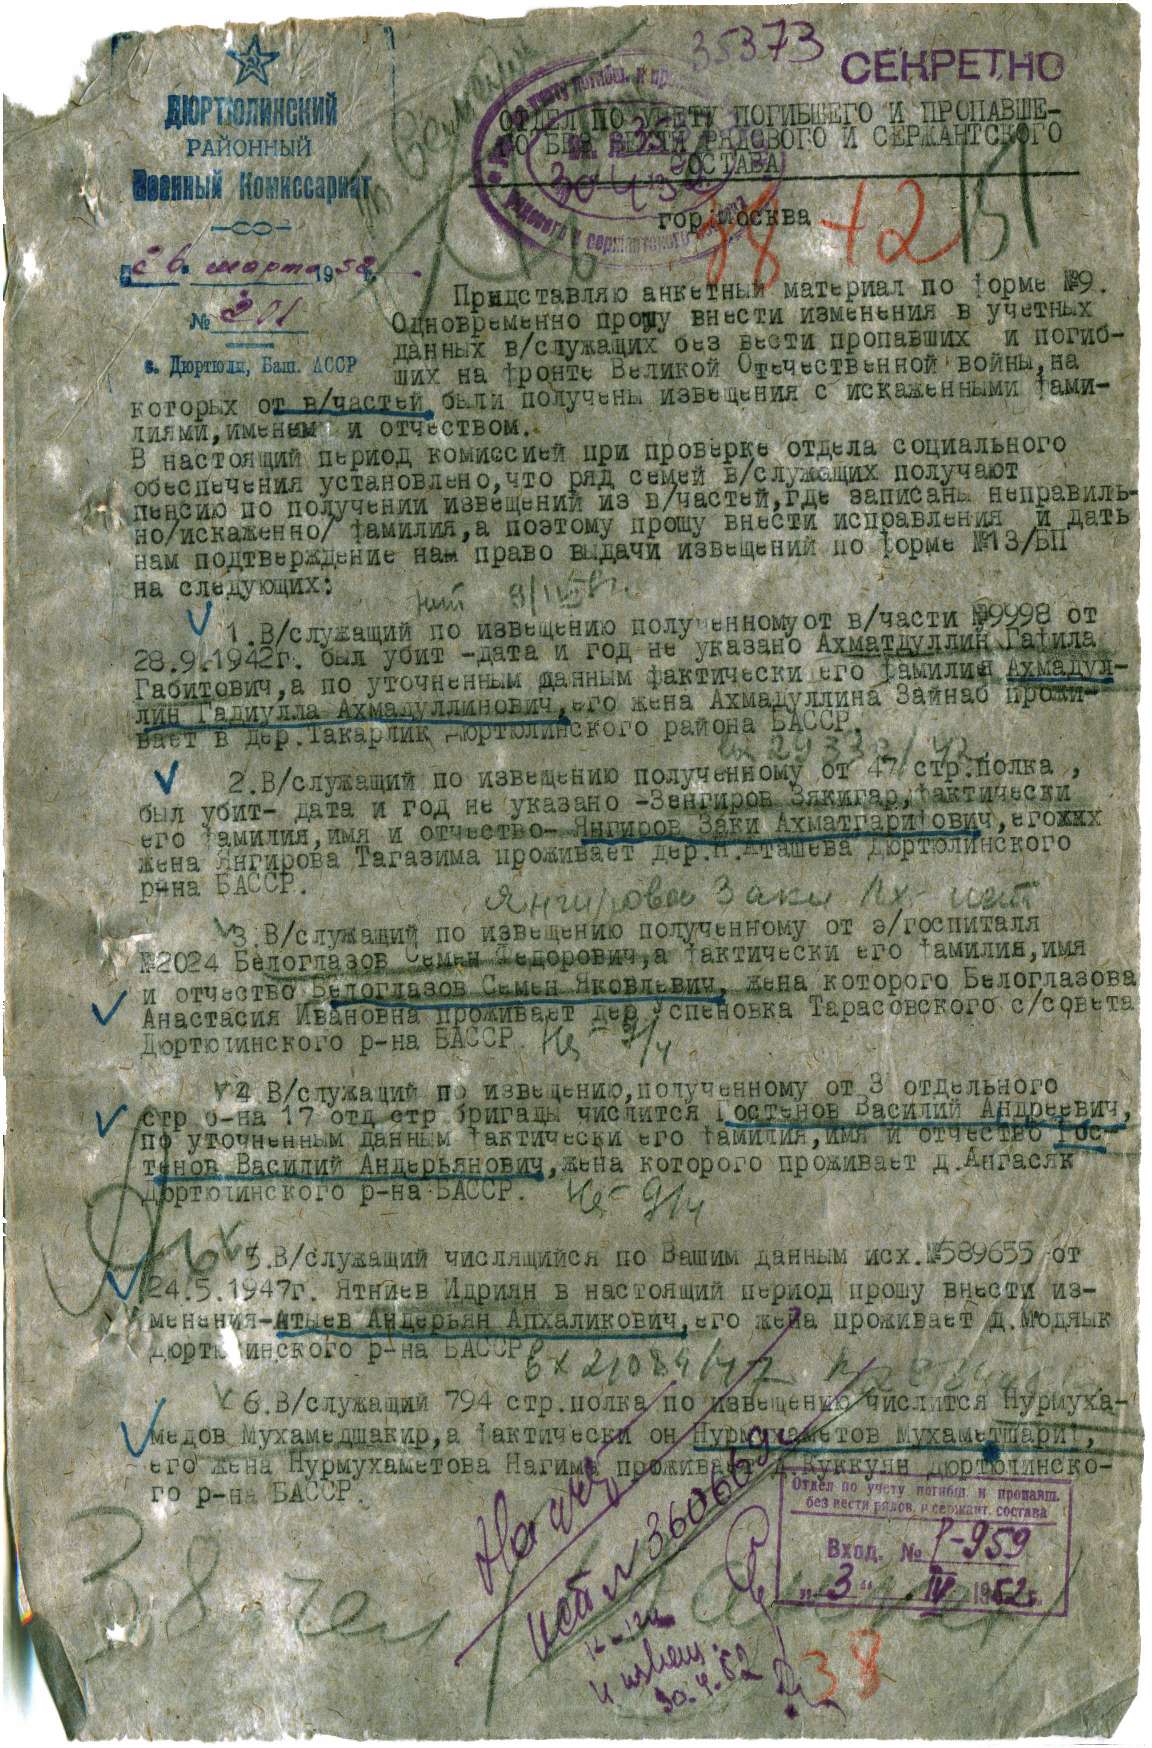 35373
СЕКРЕТНО
ДЮРТЮЛИНСКИЙ
РАЙОННЫЙ
Военный Комиссариат
ОТДЕЛ ПО УЧЕТУ ПОГИБШЕГО И ПРОПАВШЕ-
ГО БЕЗ ВЕСТИ РЯДОВОГО И СЕРЖАНТСКОГО
СОСТАВА
гор.Москва
26 марта 1952 г.
№ 301
с. Дюртюли, Баш. АССР
Придставляю анкетный материал по форме №9.
Одновременно прошу внести изменения в учетных
данных в/служащих без вести пропавших и погиб-
ших на фронте Великой Отечественной войны,на
которых от в/частей были получены извещения с искаженными фами-
лиями,именем и отчеством.
В настоящий период комиссией при проверке отдела социального
обеспечения установлено,что ряд семей в/служащих получают
пенсию по получении извещений из в/частей,где записаны неправиль-
но/искаженно/ фамилия,а поэтому прошу внести исправления и дать
нам подтверждение нам право выдачи извещений по форме №13/БП
на следующих:
1.В/служащий по извещению полученному от в/части №9998 от
28.9.1942г. был убит -дата и год не указано Ахматдуллин Гафила
Габитович,а по уточненным данным фактически его фамилия Ахмадул-
лин Гадиулла Ахмадуллинович,его жена Ахмадуллина Зайнаб прожи-
вает в дер.Такарлик Дюртюлинского района БАССР.
вх 29332/42
2.В/служащий по извещению полученному от 47 стр.полка ,
был убит- дата и год не указано -Зенгиров Зякигар,фактически
его фамилия,имя и отчество- Янгиров Заки Ахматгарифович,его
жена Янгирова Тагазима проживает дер.Н.Аташева Дюртюлинского
р-на БАССР.
Янгирова Заки Ах- нет
3.В/служащий по извещению полученному от э/госпиталя
№2024 Белоглазов Семен Федорович,а фактически его фамилия,имя
и отчество Белоглазов Семен Яковлевич, жена которого Белоглазова
Анастасия Ивановна проживает дер.Успеновка Тарасовского с/совета
Дюртюлинского р-на БАССР.
4 В/служащий по извещению,полученному от 3 отдельного
стр б-на 17 отд стр бригады числится Гостенов Василий Андреевич,
по уточненным данным фактически его фамилия,имя и отчество Гос-
тенов Василий Андерьянович,жена которого проживает д.Ангасяк
Дюртюлинского р-на БАССР.
5.В/служащий числящийся по Вашим данным исх.№589655 от
24.5.1947г. Ятниев Идриян в настоящий период прошу внести из-
менения-Атыев Андерьян Апхаликович,его жена проживает д.Модяык
Дюртюлинского р-на БАССР
вх 21084/47
6.В/служащий 794 стр.полка по извещению числится Нурмуха-
медов Мухамедшакир,а фактически он Нурмухаметов Мухаметшариф,
его жена Нурмухаметова Нагима проживает д.Куккуян Дюртюлинско-
го р-на БАССР.
Отдел по учету погибш. и пропавш.
без вести рядов. и сержант. состава
Вход. № Г-959
„3“ IV 1952г.
30.4.52
38